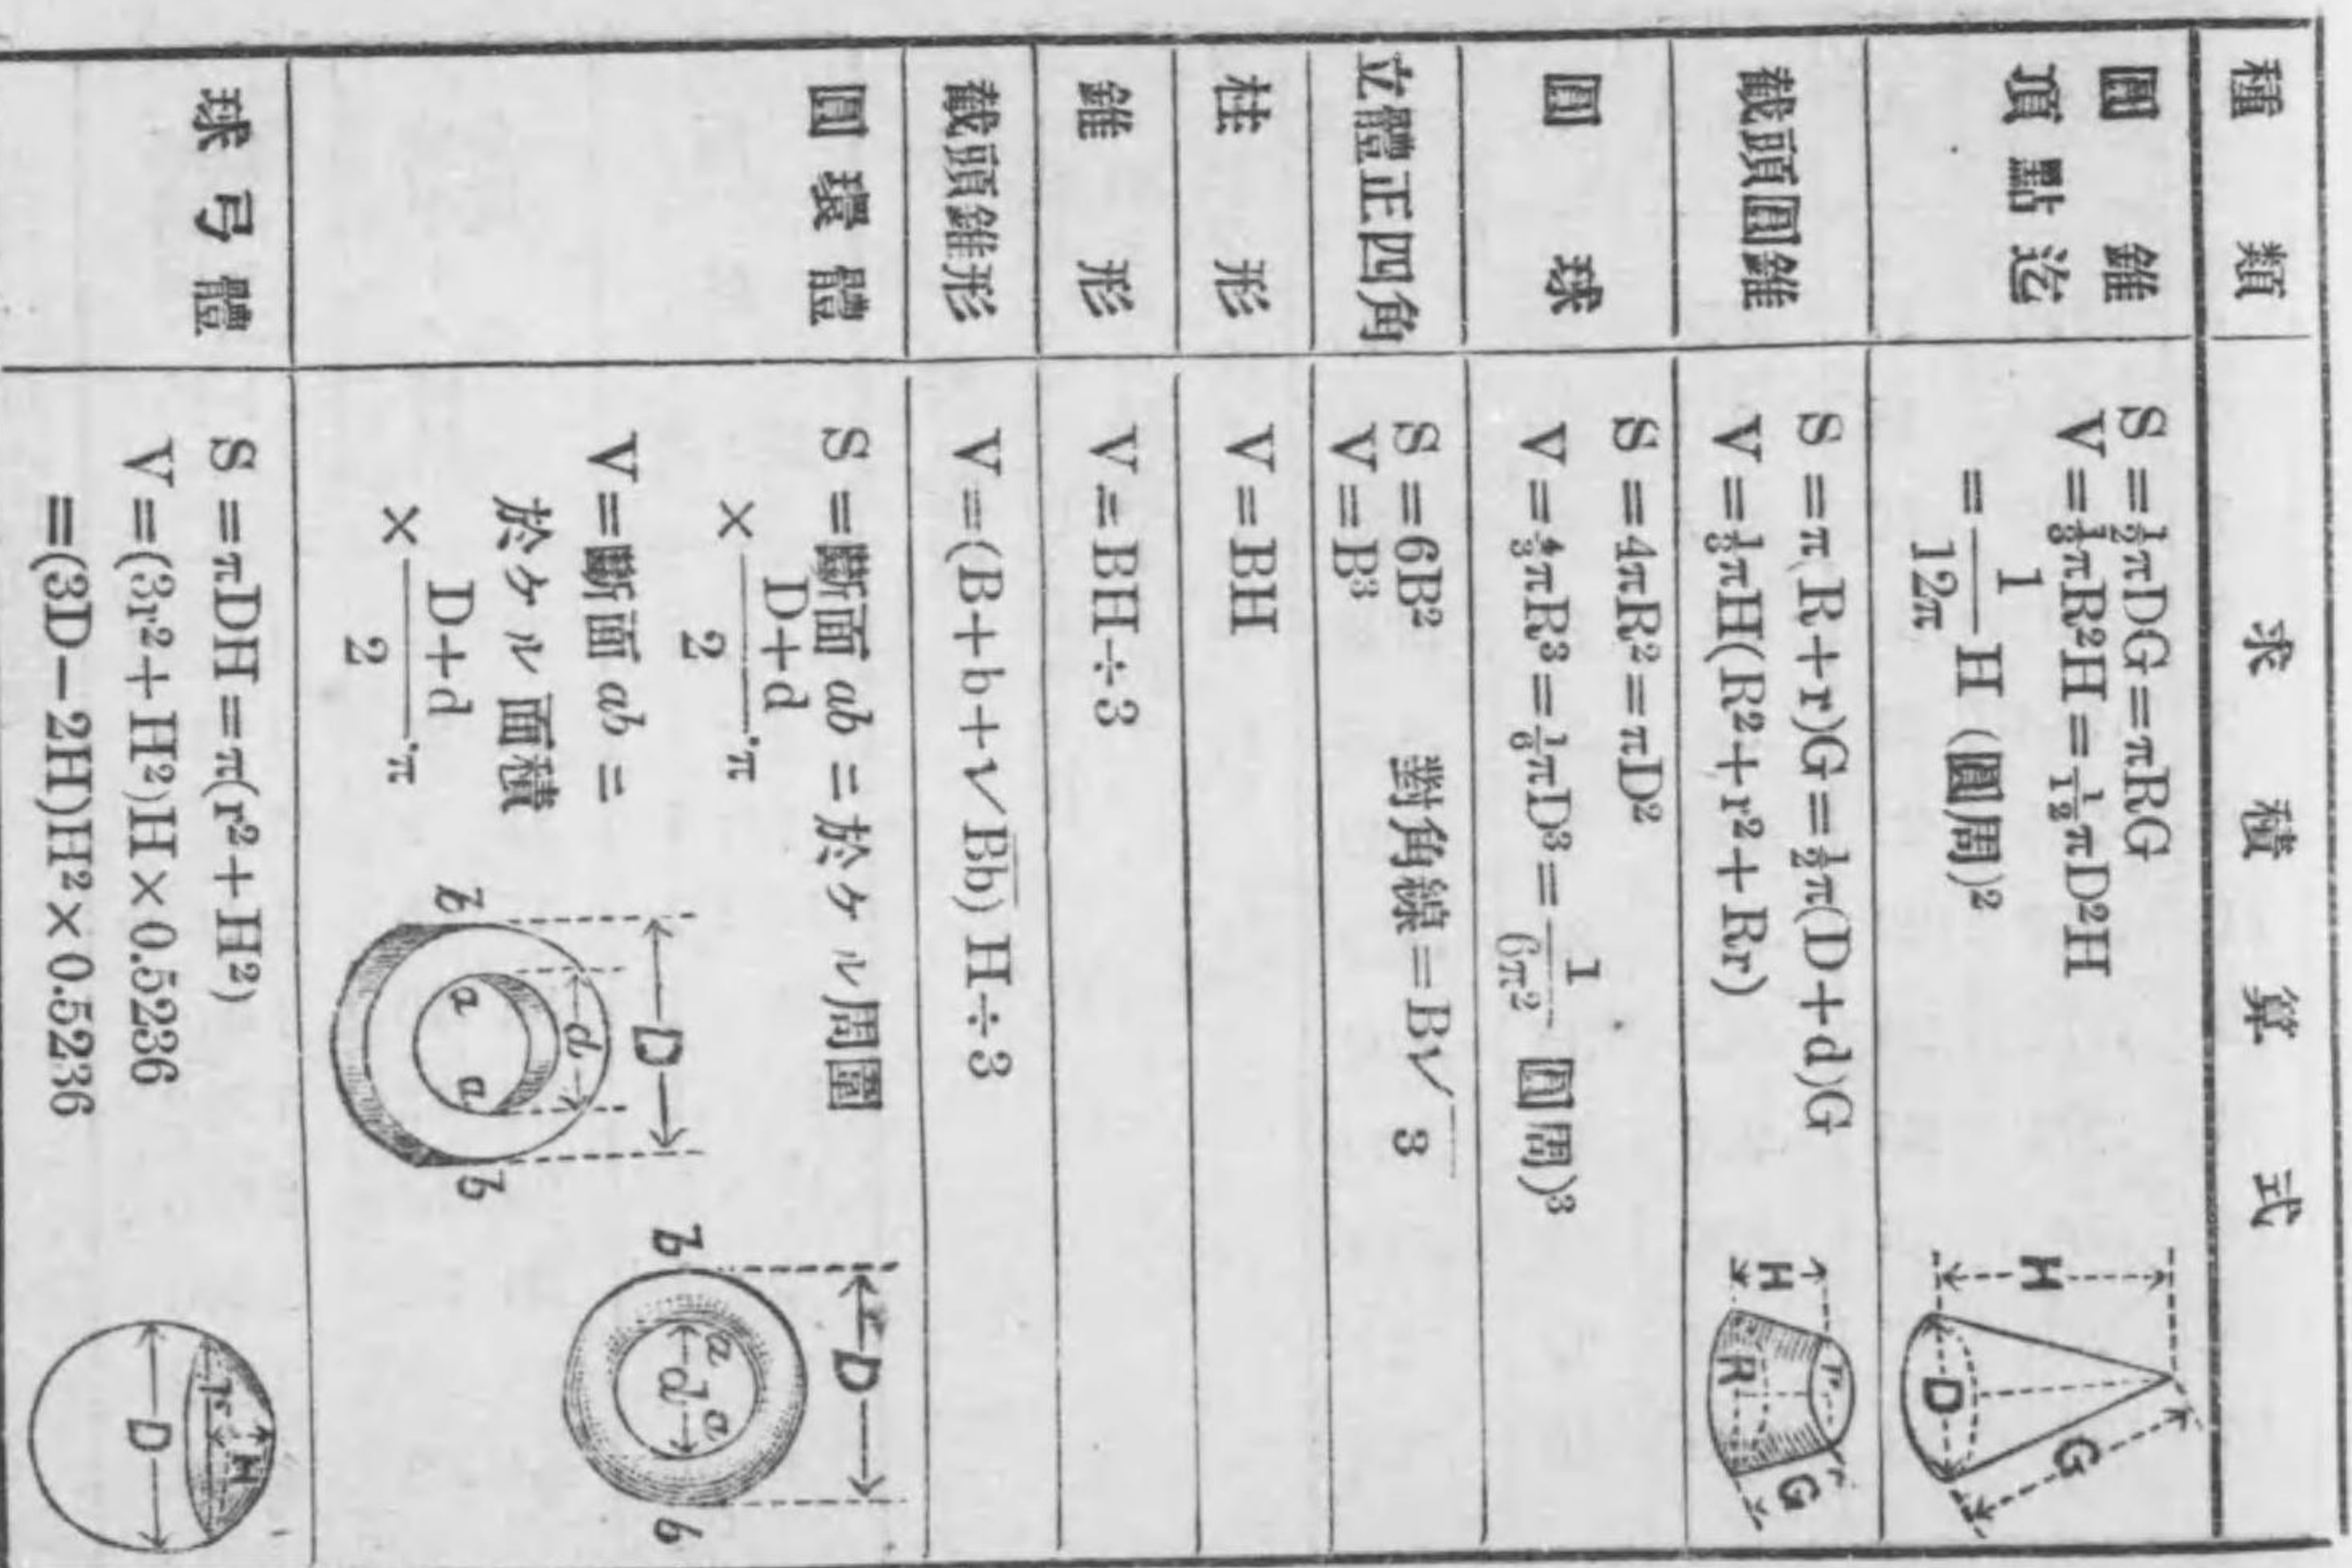 種類 求積算式
圓錐
頂點迄
S=½πDG=πRG
V=⅓πR²H=1/12πD²H
=1/12π H (圓周)²
H
D
G
截頭圓錐
S=π(R+r)G=½π(D+d)G
V=⅓πH(R²+r²+Rr)
H
R
r
G
圓球
S=4πR²=πD²
V=4/3πR³=1/6πD³=1/6π² 圓周)³
立體正四角
S=6B² 對角線=B√3
V=B³
柱形
V=BH
錐形
V=BH÷3
截頭錐形
V=(B+b+√Bb)H÷3
圓環體
S=斷面ab=於ケル周圍
×D+d/2・π
V=斷面ab=
於ケル面積
×D+d/2・π
D
d
a a
b b
D
d
a a
b b
球弓體
S=πDH=π(r²+H²)
V=(3r²+H²)H×0.5236
=(3D-2H)H²×0.5236
r
H
D